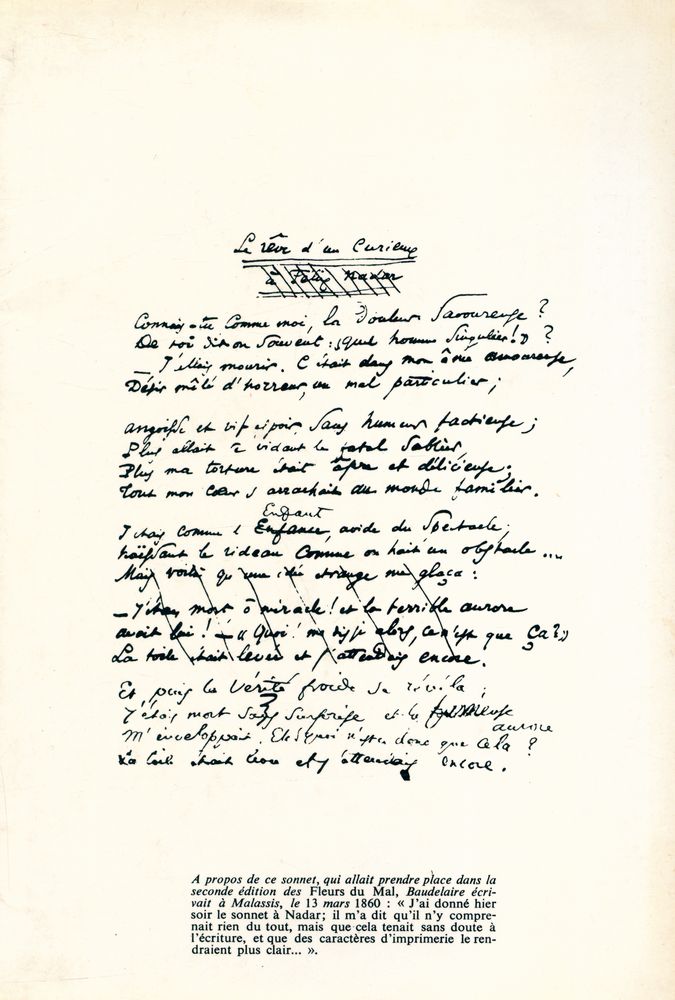 Le rêve d'un Curieux
à Félix Nadar
Connais-tu Comme moi, la Douleur Savoureuse ?
De toi dit-on Souvent : « Quel homme Singulier ! » ?
— J'allais mourir. C'était dans mon âme amoureuse,
Désir mêlé d'horreur, un mal particulier ;
angoisse et vif espoir, Sans humeur factieuse ;
Plus allait se vidant le fatal Sablier,
Plus ma torture était âpre et délicieuse ;
Tout mon cœur s'arrachait du monde familier.
Enfant
J'étais comme l'Enfance, avide du Spectacle,
haïssant le rideau Comme on hait un obstacle ...
Mais voilà qu'une idée étrange me glaça :
— J'étais mort, ô miracle ! et la terrible aurore
avait lui ! — « Quoi ! me dis-je alors, ce n'est que Ça ? »
La toile était levée et j'attendais encore.
Et puis la Vérité froide se révéla ;
J'étais mort Sans Surprise et la
aurore
M'enveloppait. Eh quoi n'est-ce donc que Cela ?
La toile était levée et j'attendais encore.
A propos de ce sonnet, qui allait prendre place dans la
seconde édition des Fleurs du Mal, Baudelaire écri-
vait à Malassis, le 13 mars 1860 : « J'ai donné hier
soir le sonnet à Nadar; il m'a dit qu'il n'y compre-
nait rien du tout, mais que cela tenait sans doute à
l'écriture, et que des caractères d'imprimerie le ren-
draient plus clair... ».